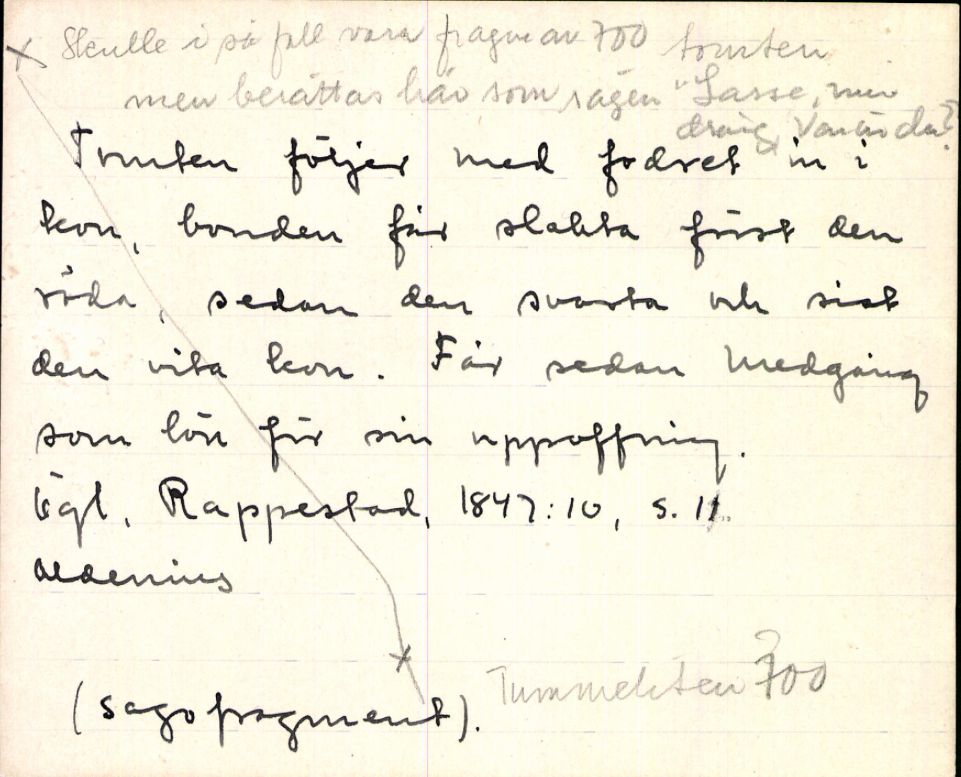 x Skulle i så fall vara fragm av 700 tomten
men berättas här som sägen "Lasse, min
dräng, Var är du?
Tomten följer med fodret in i
kon, bonden får slakta först den
röda, sedan den svarta och sist
den vita kon. Får sedan medgång
som lön för sin uppoffring.
Ögl, Rappestad, 1847:10, s. 11
Aldenius
x
(sagofragment). Tummeliten 700
?